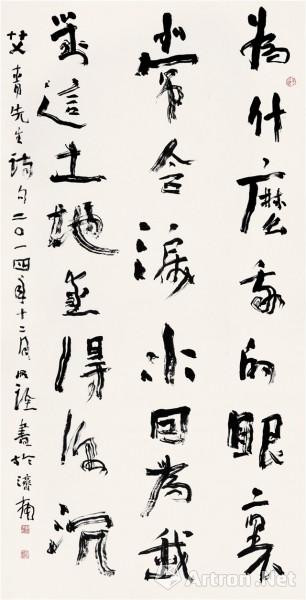 為什麼我的眼裏
常含淚水因為我
對這土地愛得深沉
艾青先生詩句二〇一四年十二月明詮書於濟南
Artron.Net